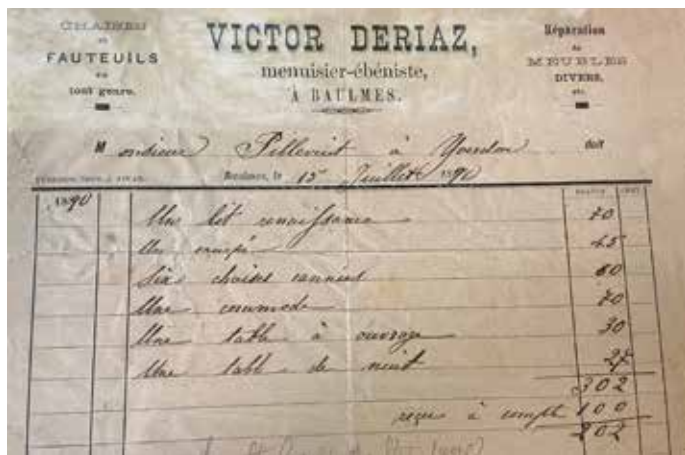 CHAISES
et
FAUTEUILS
en
tout genre.
VICTOR DERIAZ,
menuisier-ébéniste,
À BAULMES.
Réparation
de
MEUBLES
DIVERS,
etc.
Monsieur Pillevuit à Yverdon doit
Baulmes, le 15 Juillet 1890
FRANCS CENT.
1890
Un lit renaissance 70
Un canapé 45
Six chaises 60
Une commode 70
Une table à ouvrage 30
Une table de nuit 27
302
reçu à compte 100
202